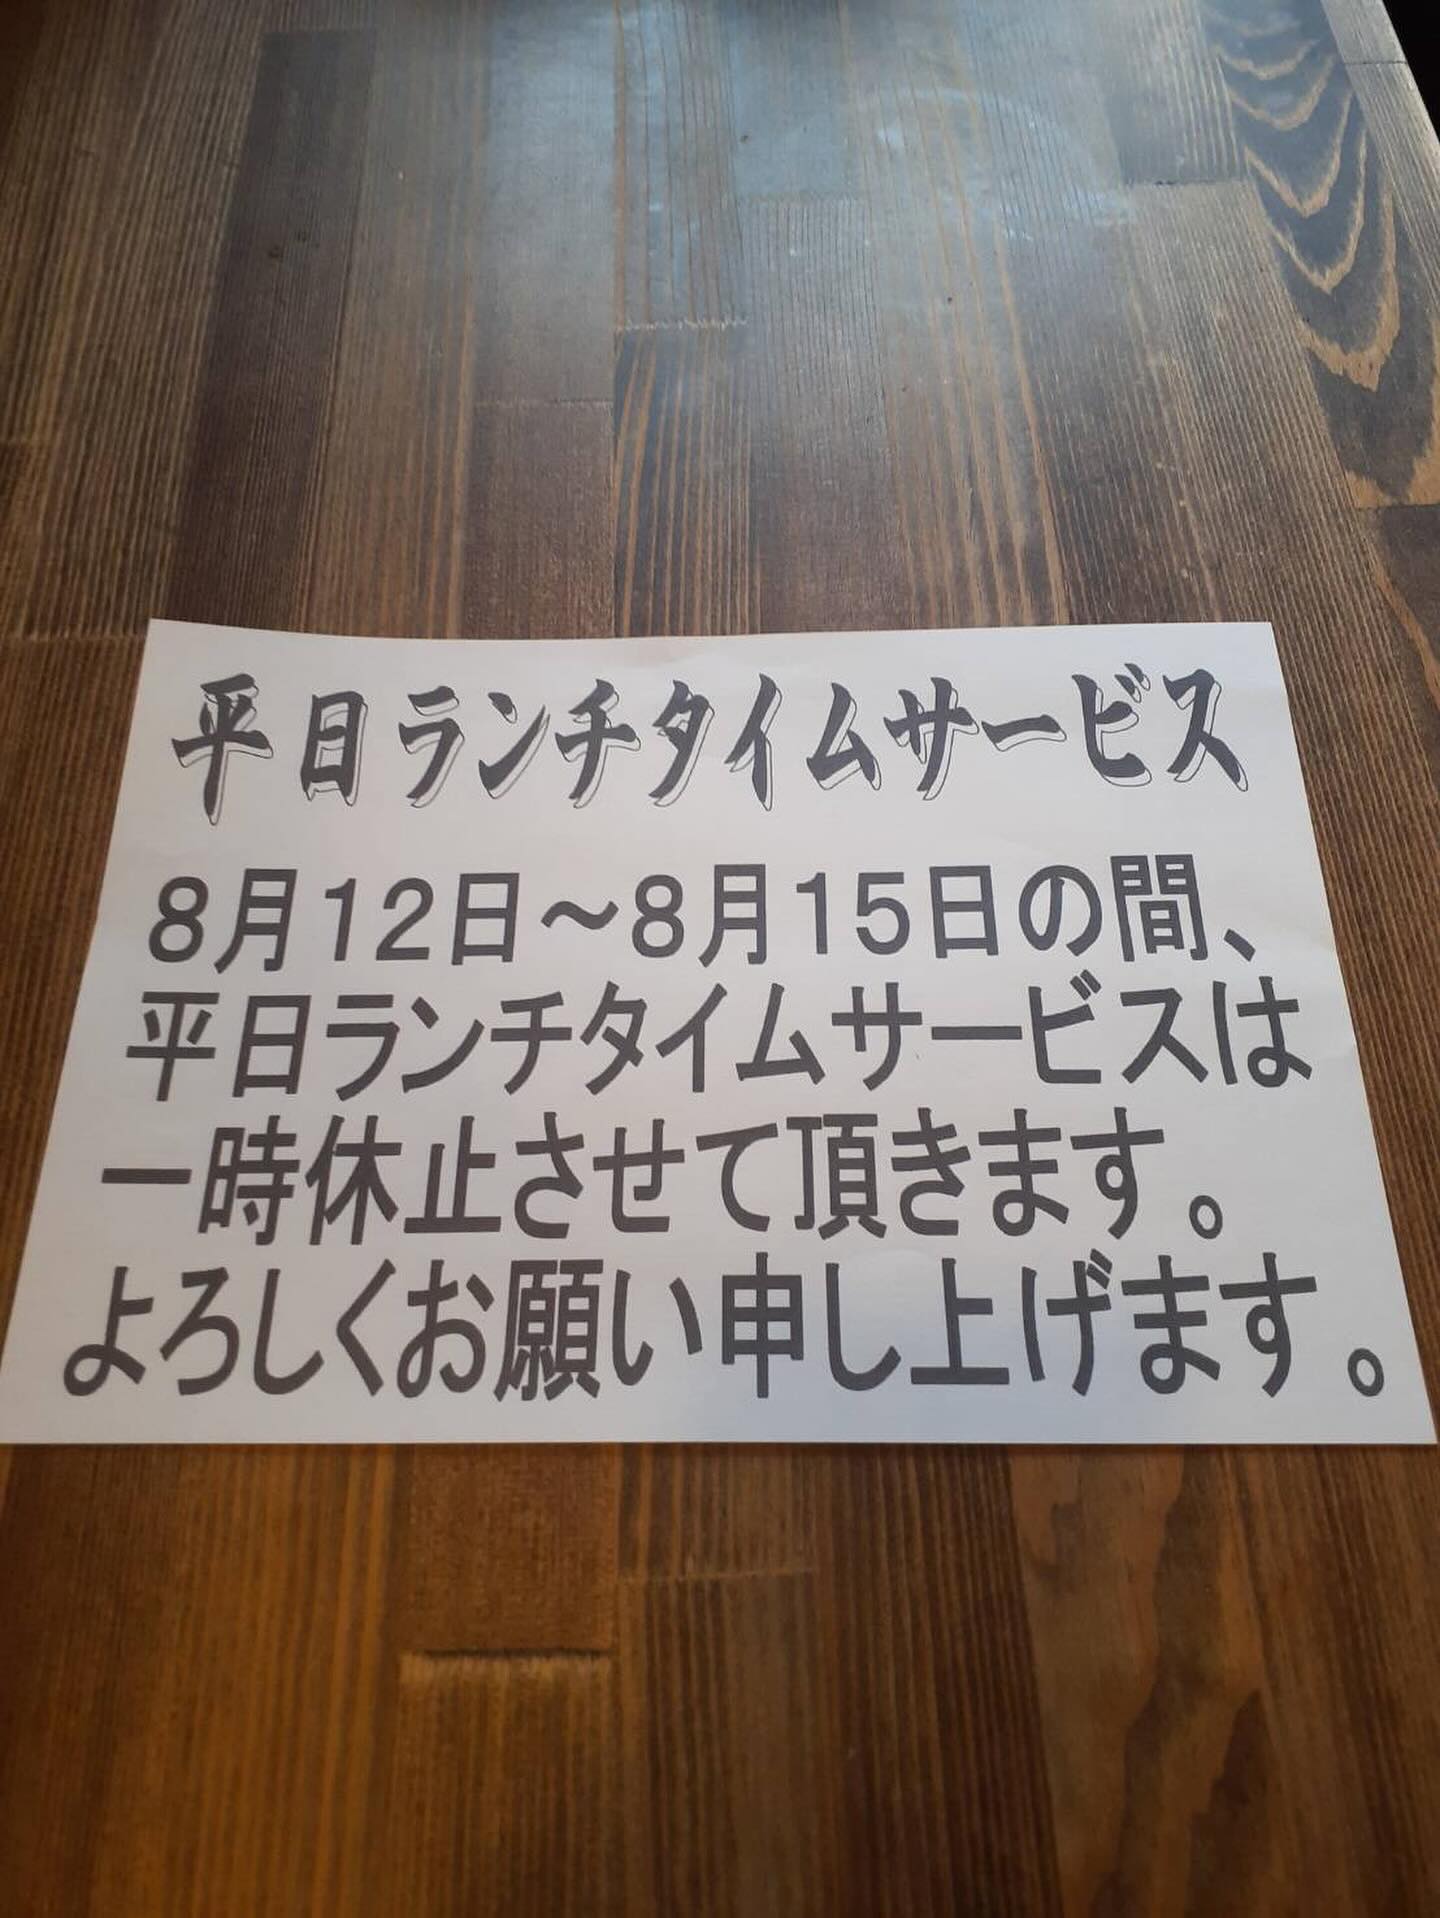 平日ランチタイムサービス
8月12日～8月15日の間、
平日ランチタイムサービスは
一時休止させて頂きます。
よろしくお願い申し上げます。